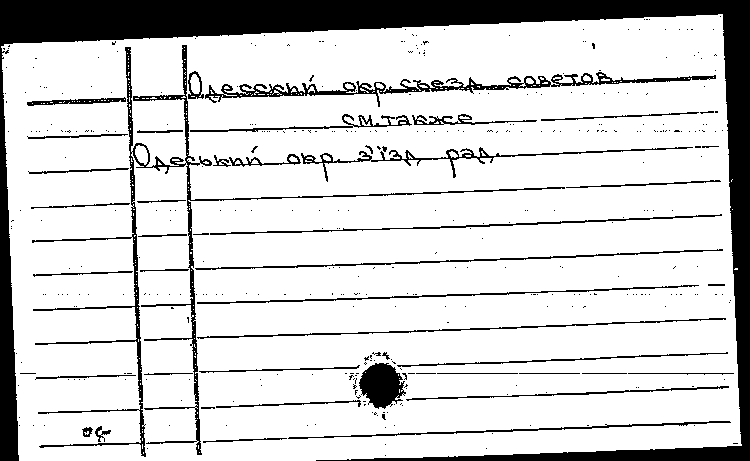 Одесский окр. съезд советов.
см. также
Одеський окр. з'їзд рад.